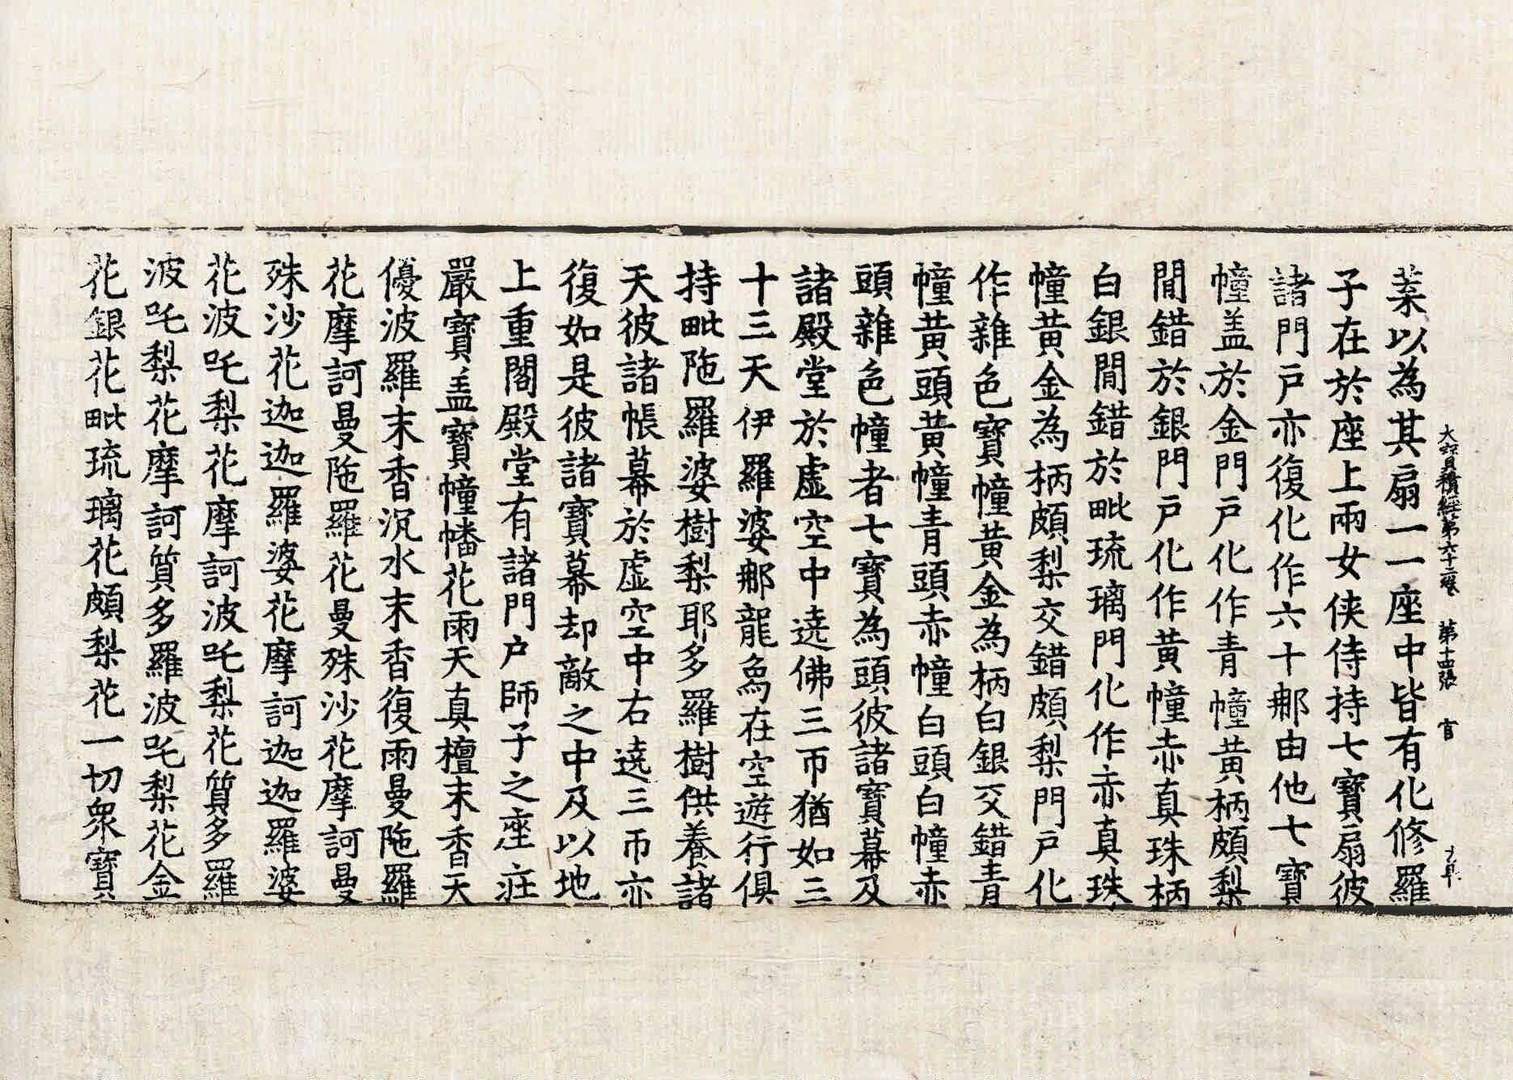 大寶積經第六十二卷 第十四張 官
葉以為其扇一一座中皆有化修羅
子在於座上兩女俠侍持七寶扇彼
諸門戶亦復化作六十那由他七寶
幢盖於金門戶化作青幢黃柄頗梨
間錯於銀門戶化作黃幢赤真珠柄
白銀間錯於毗琉璃門化作赤真珠
幢黃金為柄頗梨交錯頗梨門戶化
作雜色寶幢黃金為柄白銀交錯青
幢黃頭黃幢青頭赤幢白頭白幢赤
頭雜色幢者七寶為頭彼諸寶幕及
諸殿堂於虛空中遶佛三帀猶如三
十三天伊羅婆那龍象在空遊行俱
持毗陁羅婆樹梨耶多羅樹供養諸
天彼諸帳幕於虛空中右遶三帀亦
復如是彼諸寶幕却敵之中及以地
上重閣殿堂有諸門戶師子之座莊
嚴寶盖寶幢幡花雨天真檀末香天
優波羅末香沉水末香復雨曼陁羅
花摩訶曼陁羅花曼殊沙花摩訶曼
殊沙花迦迦羅婆花摩訶迦迦羅婆
花波吒梨花摩訶波吒梨花質多羅
波吒梨花摩訶質多羅波吒梨花金
花銀花毗琉璃花頗梨花一切衆寶